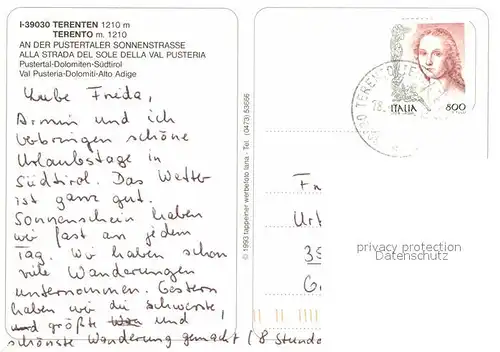 I-39030 TERENTEN 1210 m
TERENTO m. 1210
AN DER PUSTERTALER SONNENSTRASSE
ALLA STRADA DEL SOLE DELLA VAL PUSTERIA
Pustertal-Dolomiten-Südtirol
Val Pusteria-Dolomiti-Alto Adige
Liebe Frieda,
Armin und ich
verbringen schöne
Urlaubstage in
Südtirol. Das Wetter
ist ganz gut.
Sonnenschein haben
wir fast an jedem
Tag. Wir haben schon
viele Wanderungen
unternommen. Gestern
haben wir die schwerste,
und größte und
schönste Wanderung gemacht (8 Stunde
© 1993 tappeiner werbefoto lana - Tel. (0473) 53666
ITALIA
800
TERENTO
18.
Fr
Urt
35
G
privacy protection
Datenschutz